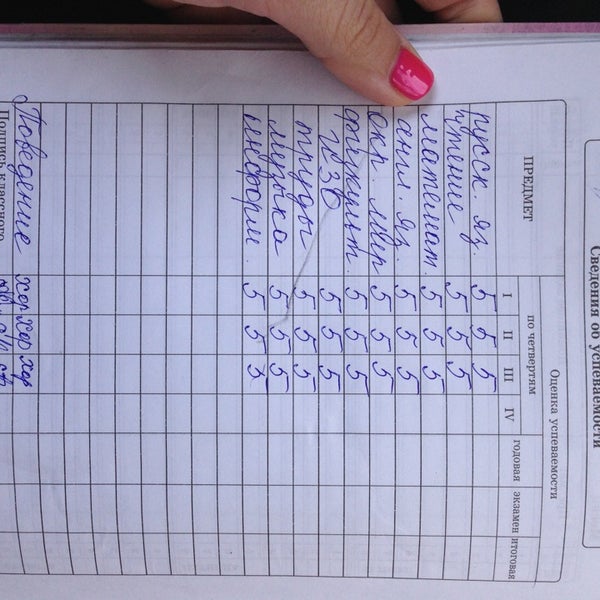 Сведения об успеваемости
ПРЕДМЕТ Оценка успеваемости
по четвертям годовая экзамен итоговая
I II III IV
русск. яз. 5 5 5
чтение 5 5 5
математ. 5 5 5
англ. яз. 5 5 5
окр. мир 5 5 5
физкульт. 5 5 5
ИЗО 5 5 5
труды 5 5 5
музыка 5 5 5
информ. 5 5 5
Поведение хор хор хор
Подпись классного